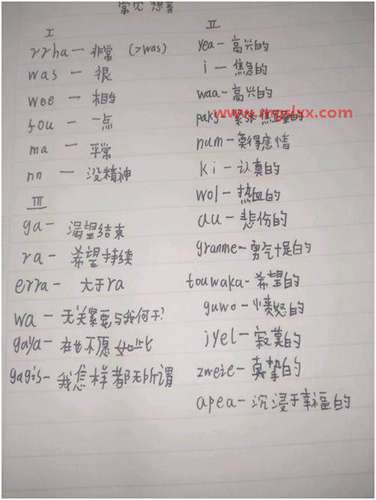 常见想音
I
rrha — 非常 (>was)
was — 很
wee — 相当
fou — 一点
ma — 平常
nn — 没精神
III
ga — 渴望结束
ra — 希望持续
erra — 大于ra
wa — 无关紧要与我何干?
gaya — 在也不愿如此
gagis — 我怎样都无所谓
II
yea — 高兴的
i — 焦急的
waa — 高兴的
pak
www.
xx.com
num — 莫得感情
ki — 认真的
wol — 热血的
au — 悲伤的
granme — 勇气十足的
touwaka — 希望的
guwo — 愤怒的
jyel — 寂寞的
zweie — 真挚的
apea — 沉浸于幸福的